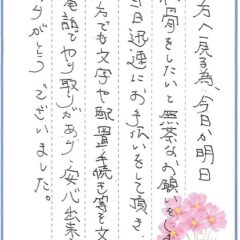 方へ戻る為、今日か明日
納骨をしたいと無茶なお願いをし
当日迅速にお手伝いをして頂き、
方でも文字や配置手続き等を文
電話でやり取りがあり安心出来
りがとうございました。